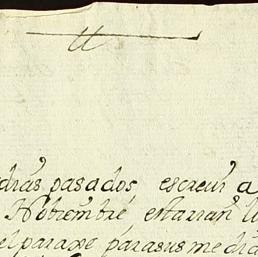 dias pasados escreui a
Nobiembre estarian l
el paraxe parasus me dia